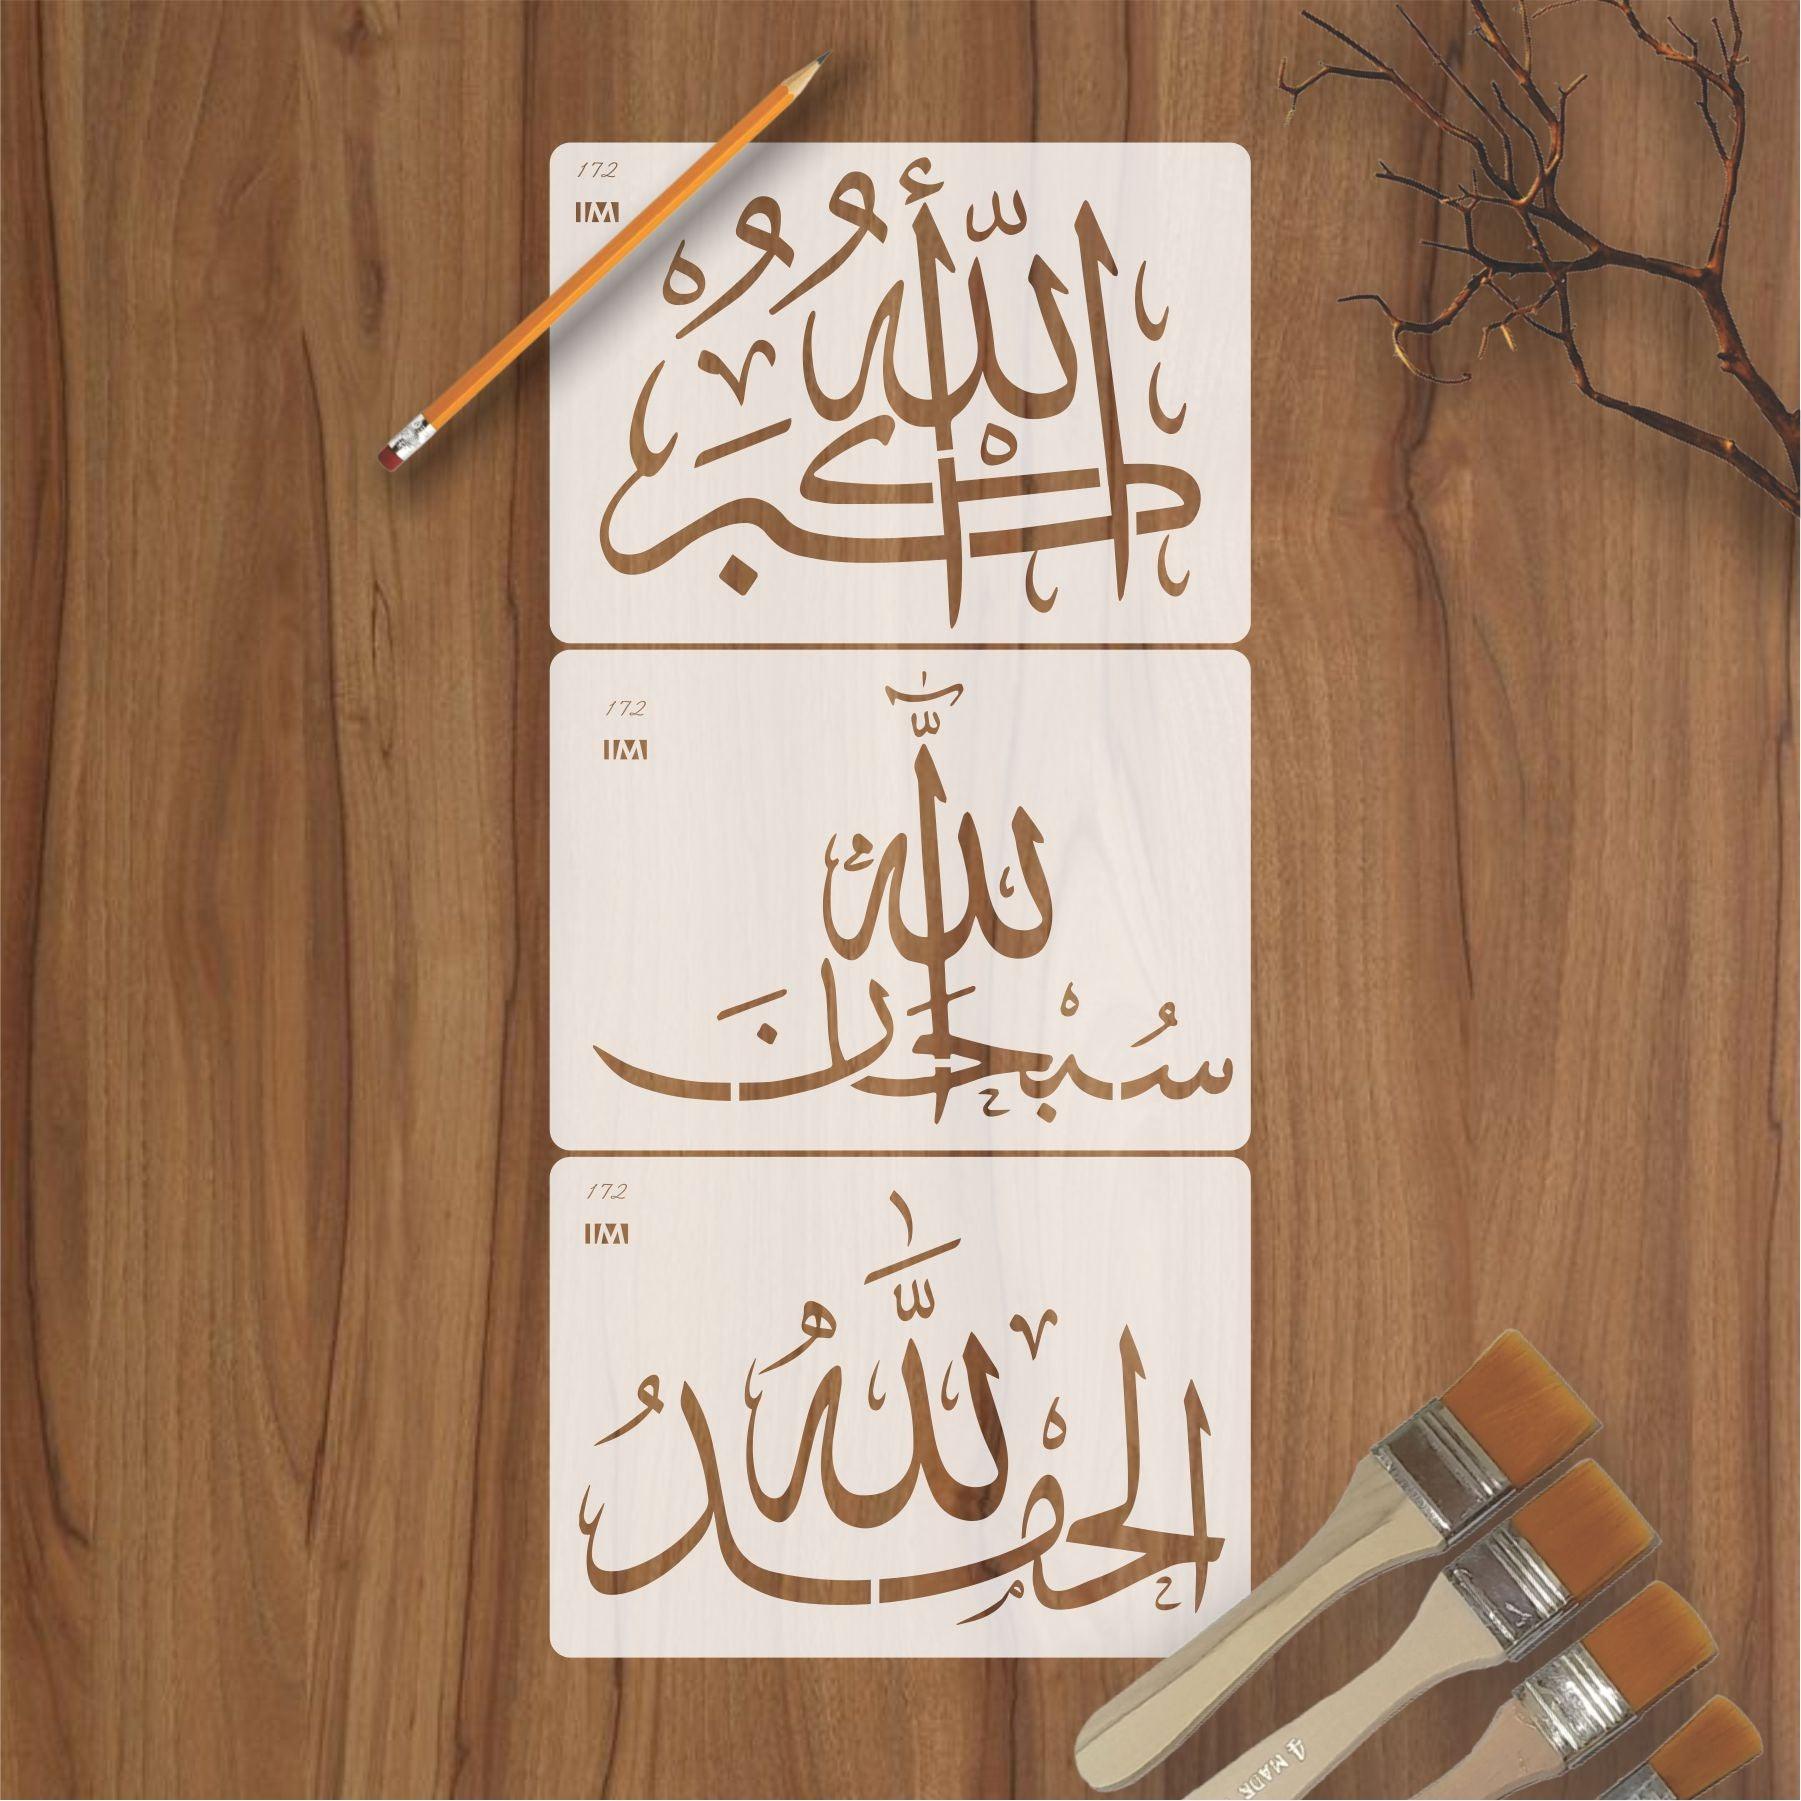 172
IM
اللّٰهُ أَكْبَرُ
172
IM
سُبْحَانَ اللّٰه
172
IM
الْحَمْدُ لِلّٰهِ
4 MADE